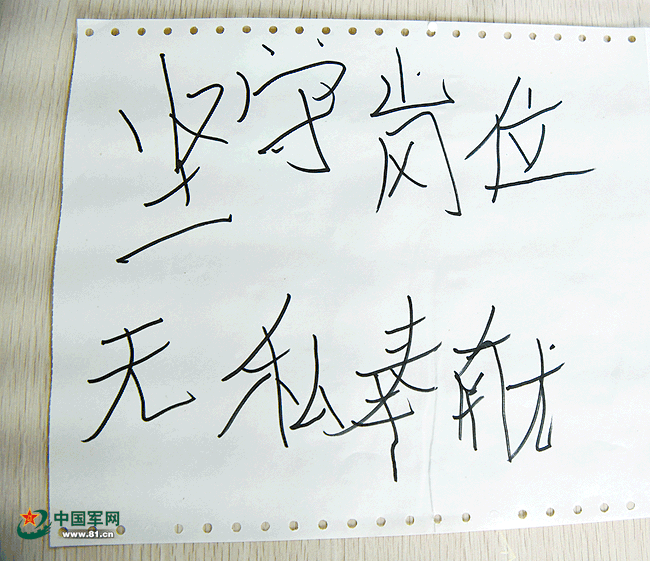 坚守岗位
无私奉献
中国军网
www.81.cn